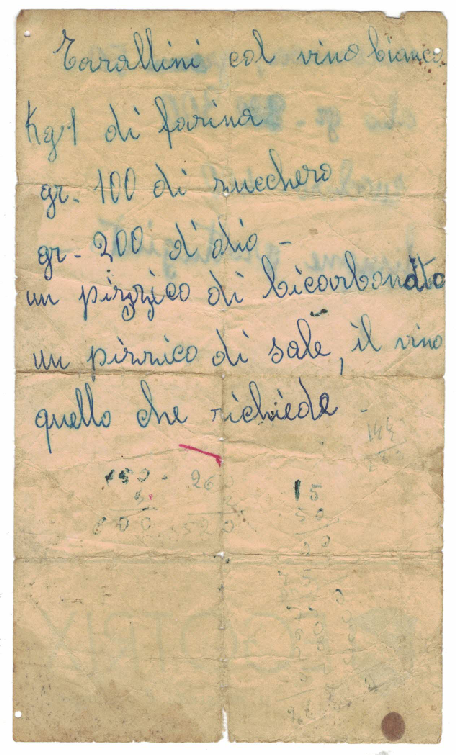 Tarallini col vino bianco
Kg.1 di farina
gr. 100 di zucchero
gr. 200 d'olio -
un pizzico di bicarbonato
un pizzico di sale, il vino
quello che richiede -
15
50